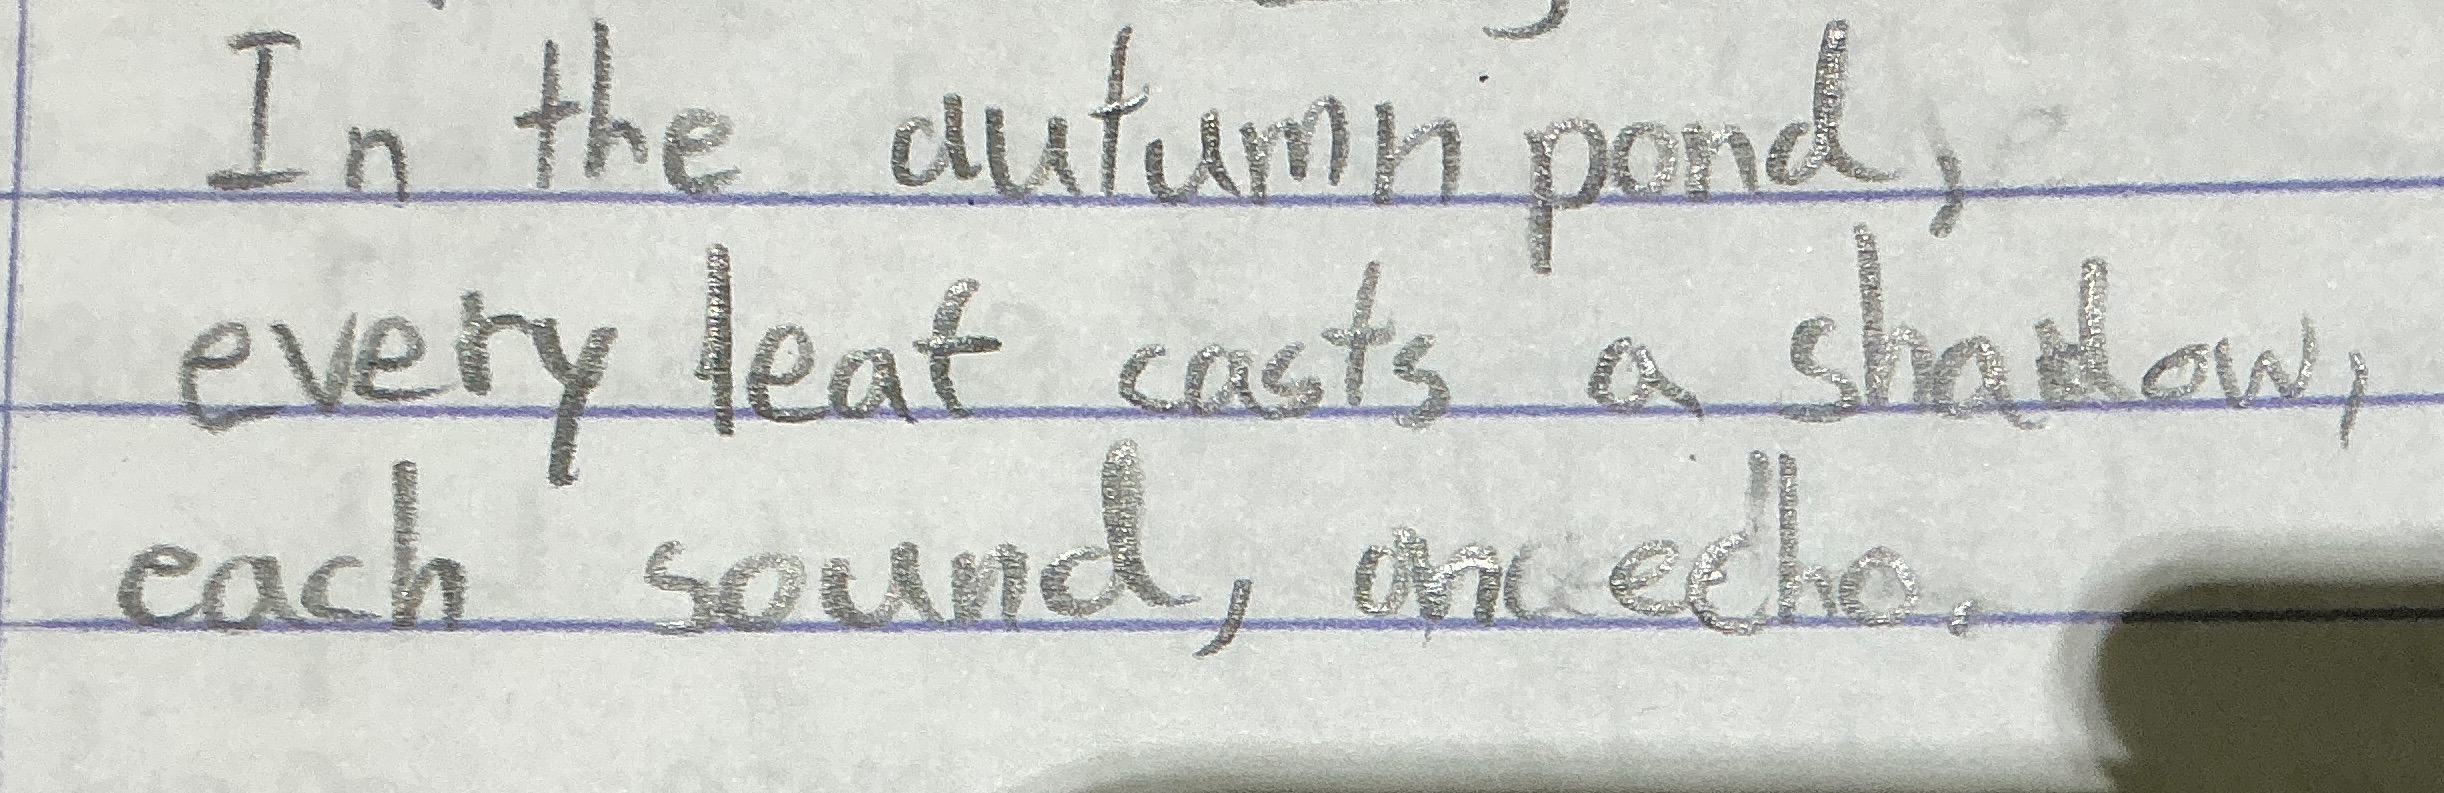 In the autumn pond,
every leaf casts a shadow,
each sound, an echo.